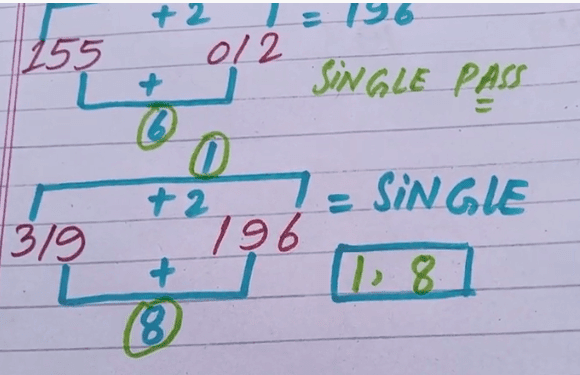 +2 = 196
155 012
+ SiNGLE PASS
6
1
+2 = SiNGLE
319 196
+ 1, 8
8